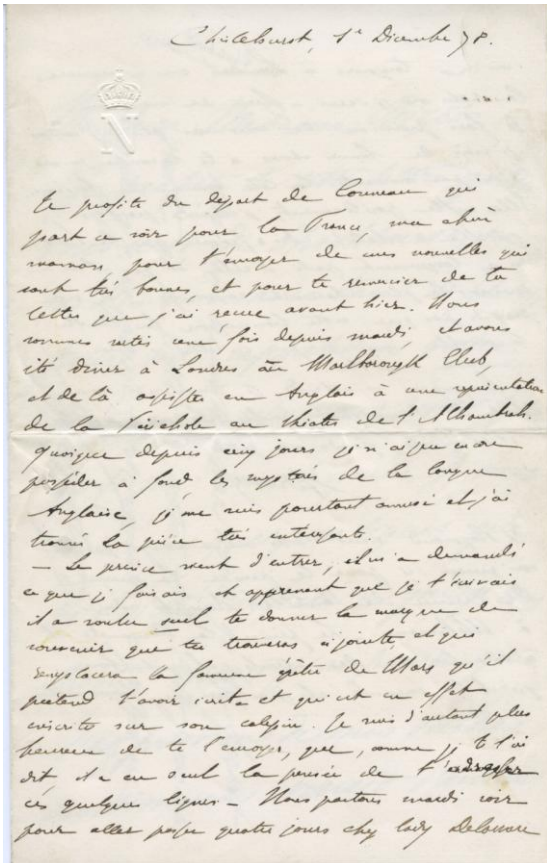 Chislehurst, 1er Décembre 78.
N
Je profite du départ de Conneau qui
part ce soir pour la France, ma chère
maman, pour t'envoyer de mes nouvelles qui
sont très bonnes, et pour te remercier de ta
lettre que j'ai reçue avant hier. Nous
sommes sortis une fois depuis mardi, et avons
été diner à Londres au Marlborough Club,
et de là assister en Anglais à une représentation
de la Périchole au théatre de l'Alhambrah.
Quoique depuis cinq jours je n'ai pu encore
posséder à fond les mystères de la langue
Anglaise, je me suis pourtant amusé et j'ai
trouvé la pièce très intéressante.
— Le prince vient d'entrer, il m'a demandé
ce que je faisais et apprenant que je t'écrivais
il a voulu seul te donner la marque de
souvenir que tu trouveras ci jointe, et qui
remplacera la fameuse épître de Mars qu'il
prétend t'avoir écrite et qui est en effet
inscrite sur son calepin. Je suis d'autant plus
heureux de te l'envoyer, que, comme je te l'ai
dit, il a eu seul la pensée de t'adresser
ces quelques lignes — Nous partons mardi soir
pour aller passer quatre jours chez lady Delaware